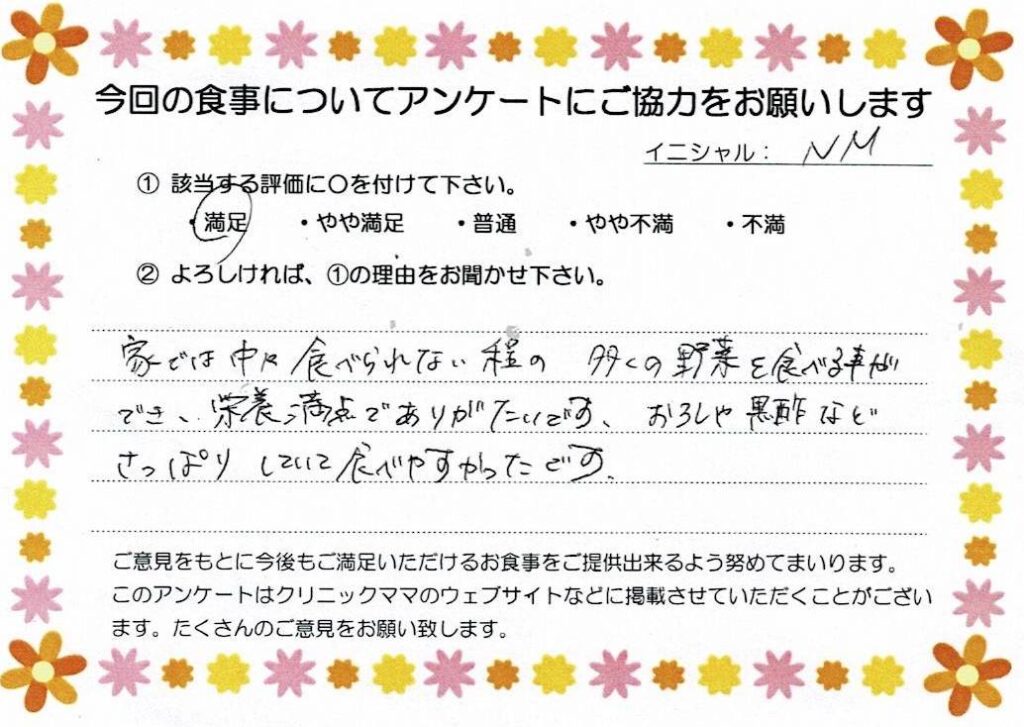 今回の食事についてアンケートにご協力をお願いします
イニシャル： NM
① 該当する評価に〇を付けて下さい。
・満足 ・やや満足 ・普通 ・やや不満 ・不満
② よろしければ、①の理由をお聞かせ下さい。
家では中々食べられない程の 多くの野菜を食べる事が
でき、栄養満点でありがたいです、おろしや黒酢など
さっぱりしていて食べやすかったです。
ご意見をもとに今後もご満足いただけるお食事をご提供出来るよう努めてまいります。
このアンケートはクリニックママのウェブサイトなどに掲載させていただくことがござい
ます。たくさんのご意見をお願い致します。